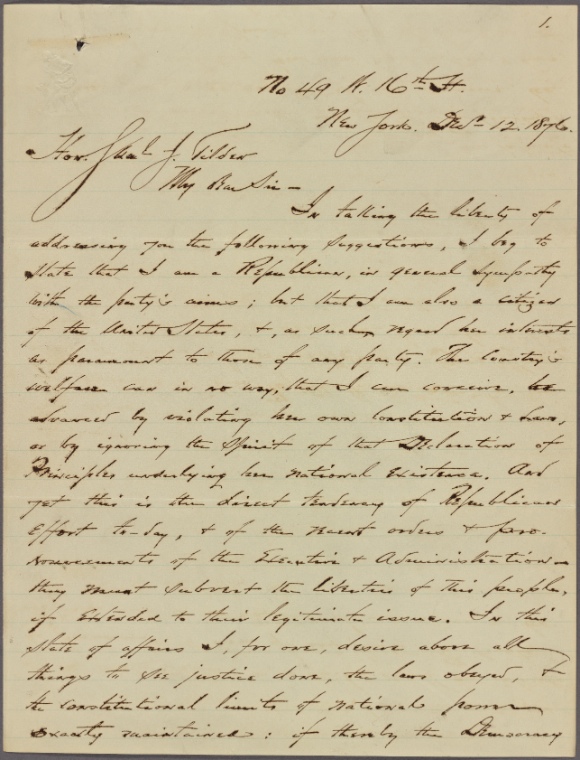 1.
No 49 W. 16th St.
New York. Dec. 12. 1876.
Hon. Saml J. Tilden
My Dear Sir—
In taking the liberty of
addressing you the following suggestions, I beg to
state that I am a Republican, in general sympathy
with the party's aims; but that I am also a citizen
of the United States, &, as such, regard her interests
as paramount to those of any party. The Country's
welfare can in no way, that I can conceive, be
advanced by violating her own Constitution & Laws,
or by ignoring the Spirit of that Declaration of
Principles underlying her national existence. And
yet this is the direct tendency of Republican
effort to-day, & of the recent orders & pro-
nouncements of the Executive & Administration—
they must subvert the liberties of this people,
if extended to their legitimate issue. In this
state of affairs I, for one, desire above all
things to see justice done, the laws obeyed, &
the constitutional limits of national power
exactly maintained: if thereby the Democracy